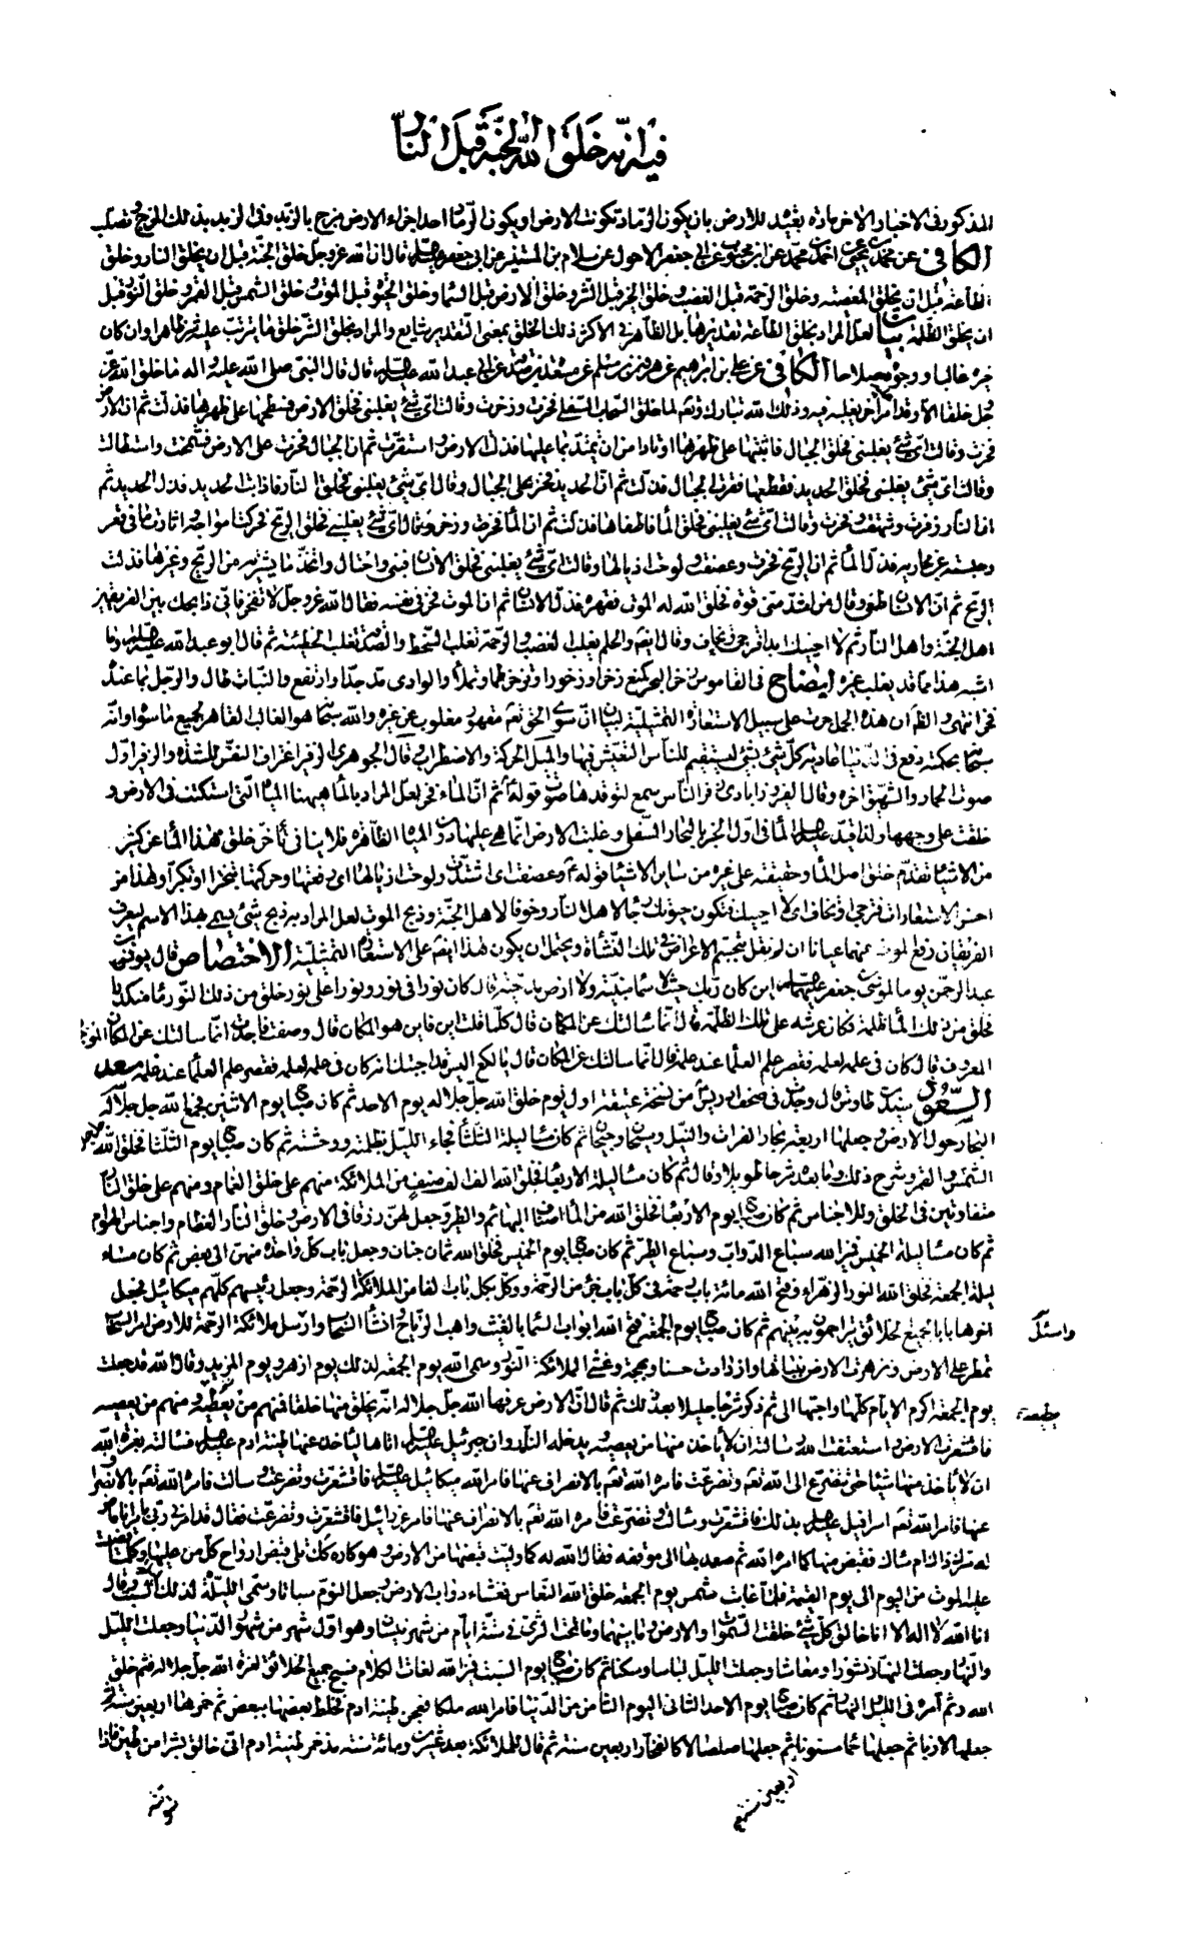 فيه انه خلق الله الجنة قبل النار
المذكور فى الاخبار الاخر مادة بعيدة للارض بان يكون الرماد تكونت الارض او يكون الرماد احد اجزاء الارض مزج بالزبد فى الزبد بذلك المزج وتصلب
الكافى عن محمد بن يحيى عن احمد بن محمد عن ابن محبوب عن ابى جعفر الاحول عن سلام بن المستنير عن ابى جعفر عليه السلام قال ان الله عز وجل خلق الجنة قبل ان يخلق النار وخلق
الطاعة قبل ان يخلق المعصية وخلق الرحمة قبل الغضب وخلق الخير قبل الشر وخلق الارض قبل السماء وخلق الحيوة قبل الموت وخلق الشمس قبل القمر وخلق النور قبل
ان يخلق الظلمة بيان لعل المراد بخلق الطاعة تقديرها بل الظاهر فى الاكثر ذلك والخلق بمعنى التقدير شايع والمراد بخلق الشر خلق ما يترتب عليه شر ظاهرا وان كان
خيره غالبا ووجوده صلاحا الكافى عن على بن ابراهيم عن هرون بن مسلم عن مسعدة بن صدقة عن ابى عبد الله عليه السلام قال قال النبى صلى الله عليه واله ما خلق الله عز
وجل خلقا الا وقد امر عليه اخر يغلبه فيه وذلك ان الله تبارك وتعالى لما خلق السحاب السفلى فخرت وزخرت وقالت اى شئ يغلبنى فخلق الارض فسطحها على ظهرها فذلت ثم ان الارض
فخرت وقالت اى شئ يغلبنى فخلق الجبال فاثبتها على ظهرها اوتادا من ان تميد بما عليها فذلت الارض واستقرت ثم ان الجبال فخرت على الارض فشمخت واستطالت
وقالت اى شئ يغلبنى فخلق الحديد فقطعها فقرت الجبال فذلت ثم ان الحديد فخر على الجبال وقال اى شئ يغلبنى فخلق النار فاذابت الحديد فذل الحديد ثم
ان النار زفرت وشهقت وفخرت وقالت اى شئ يغلبنى فخلق الماء فاطفاها فذلت ثم ان الماء فخر وزخر وقال اى شئ يغلبنى فخلق الريح فحركت امواجه واثارت ما فى قعره
وحبسته عن مجاريه فذل الماء ثم ان الريح فخرت وعصفت ولوحت اذيالها وقالت اى شئ يغلبنى فخلق الانسان فبنى واحتال واتخذ ما يستتر به من الريح وغيرها فذلت
الريح ثم ان الانسان طغى وقال من اشد منى قوة فخلق الله له الموت فقهره فذل الانسان ثم ان الموت فخر فى نفسه فقال الله عز وجل لا تفخر فانى ذابحك بين الفريقين
اهل الجنة واهل النار ثم لا احييك ابدا فترجى وتخاف وقال ايضا والحلم يغلب الغضب والرحمة تغلب السخط والصدقة تغلب الخطيئة ثم قال ابو عبد الله عليه السلام وما
اشبه هذا مما قد يغلب غيره ايضاح فى القاموس زخر البحر كمنع زخرا وزخورا وتزخر طما وتملأ والوادى مد جدا وارتفع والنبات طال والرجل بما عنده
فخر انتهى والظاهر ان هذه الجمل جرت على سبيل الاستعارة التمثيلية لبيان ان سوى الحق تعالى مقهور مغلوب عن غيره والله سبحانه هو الغالب القاهر لجميع ما سواه وانه
سبحانه بحكمته دفع فى الدنيا عادية كل شئ بشئ ليستقيم للناس التعيش فيها والميل الحركة والاضطراب وقال الجوهرى الزفير اغتراق النفس للشدة والزفير اول
صوت الحمار والشهيق اخره وقال الفيروزابادى زفر النار سمع لتوقدها صوت قوله ثم ان الماء فخر لعل المراد بالماء هيهنا المياه التى استكنت فى الارض و
خلقت على وجهها ولذا قيد عليه السلام الماء فى اول الخبر بالبحار السفلى وغلبت الارض انما هى عليها دون المياه الظاهرة فلا ينافى تأخر خلق هذا الماء عن كثير
من الاشياء تقدم خلق اصل الماء وحقيقته على غيره من سائر الاشياء قوله وعصفت اى اشتدت ولوحت اذيالها اى رفعتها وحركتها تبخترا وتكبرا وهذا من
احسن الاستعارات فترجى وتخاف اى لا احييك فتكون حيوتك رجاء لاهل النار وخوفا لاهل الجنة وذبح الموت لعل المراد به ذبح شئ يسمى بهذا الاسم ليعرف
الفريقان رفع الموت عنهما عيانا ان لم نقل بتجسم الاعراض فى تلك النشأة ويحتمل ان يكون هذا ايضا على الاستعارة التمثيلية الاختصاص قال يونس بن
عبد الرحمن يوما لموسى بن جعفر عليهما السلام اين كان ربك حيث لا سماء مبنية ولا ارض مدحية قال كان نورا فى نور ونورا على نور خلق من ذلك النور ماء منكدرا
فخلق من ذلك الماء ظلمة فكان عرشه على تلك الظلمة قال انما سالتك عن المكان قال كلما قلت اين فاين هو المكان قال وصفت فاجدت انما سالتك عن المكان الموجود
المعروف قال كان فى علمه لعلمه فقصر علم العلماء عند علمه قال انما سالتك عن المكان قال يا لكع اليس قد اجبتك انه كان فى علمه لعلمه فقصر علم العلماء عند علمه سعد
السعود للسيد بن طاوس قال وجدت فى صحف ادريس من نسخة عتيقة اول يوم خلق الله جل جلاله يوم الاحد ثم كان صباح يوم الاثنين فجمع الله جل جلاله
البحار حول الارض وجعلها اربعة بحار الفرات والنيل وسيحان وجيحان ثم كان مساء ليلة الثلثا فجاء الليل بظلمته ووحشته ثم كان صباح يوم الثلثا فخلق الله
الشمس والقمر وشرح ذلك وما بعده شرحا طويلا وقال ثم كان مساء ليلة الاربعا فخلق الله الف الف صنف من الملائكة منهم على خلق الغمام ومنهم على خلق النار
متفاوتين فى الخلق والاجناس ثم كان صباح يوم الاربعا فخلق الله من الماء اصناف البهائم والطير وجعل لهن رزقا فى الارض وخلق النار العظام واجناس الهوام
ثم كان مساء ليلة الخميس فميز الله سباع الدواب وسباع الطير ثم كان صباح يوم الخميس فخلق الله ثمان جنان وجعل باب كل واحدة منهن الى بعض ثم كان مساء
ليلة الجمعة فخلق الله النور الزهراء وفتح الله مائة باب رحمة فى كل باب جزء من الرحمة ووكل بكل باب الفا من الملائكة الرحمة وجعل رئيسهم كلهم ميكائيل فجعل
اخرها بابا لجميع الخلائق يتراحمون به بينهم ثم كان صباح يوم الجمعة فتح الله ابواب السماء بالغيث واهب الرياح وانشأ السحاب وارسل ملائكة الرحمة للارض امر السحاب
تمطر على الارض وزهرت الارض بنباتها وازدادت حسنا وبهجة وغشى الملائكة النور وسمى الله يوم الجمعة لذلك يوم ازهر ويوم المزيد وقال الله قد جعلت
يوم الجمعة اكرم الايام كلها واحبها الى ثم ذكر شرحا جليلا بعد ذلك ثم قال ان الارض عرفها الله جل جلاله انه يخلق منها خلقا فمنهم من يطيعه ومنهم من يعصيه
فاقشعرت الارض واستعطفت الله وسالته ان لا ياخذ منها من يعصيه ويدخله النار وان جبرئيل عليه السلام اتاها لياخذ عنها طينة ادم عليه السلام فسالته بعزة الله
ان لا ياخذ منها شيئا حتى تتضرع الى الله تعالى وتضرعت فامره الله تعالى بالانصراف عنها فامر الله ميكائيل عليه السلام فاقشعرت وتضرعت وسالت فامره الله تعالى بالانصراف
عنها فامر الله تعالى اسرافيل عليه السلام بذلك فاقشعرت وسالت وتضرعت فامره الله تعالى بالانصراف عنها فامر عزرائيل فاقشعرت وتضرعت فقال قد امرنى ربى بامر انا ماض
له سرك ذاك ام ساك فقبض منها كما امره الله ثم صعد بها الى موقفه فقال الله له كما وليت قبضها من الارض وهو كاره كذلك تلى قبض ارواح كل من عليها وكلما قضيت
عليه الموت من اليوم الى يوم القيمة فلما غابت شمس يوم الجمعة خلق الله النعاس فغشاه دواب الارض وجعل النوم سباتا وسمى الليلة لذلك ليلة السبت وقال
انا الله لا اله الا انا خالق كل شئ خلقت السموات والارض وما بينهما وما تحت الثرى فى ستة ايام من شهر نيسان وهو اول شهر من شهور الدنيا وجعلت الليل
والنهار وجعلت النهار نشورا ومعاشا وجعلت الليل لباسا وسكنا ثم كان صباح يوم السبت فميز الله لغات الكلام فسبح جميع الخلائق لعزة الله جل جلاله فتم خلق
الله وتم امره فى الليل والنهار ثم كان صباح يوم الاحد الثانى اليوم الثامن من الدنيا فامر الله ملكا فعجن طينة ادم فخلط بعضها ببعض ثم خمرها اربعين سنة ثم
جعلها لازبا ثم جعلها حمأ مسنونا ثم جعلها صلصالا كالفخار اربعين سنة ثم قال للملائكة بعد عشرين ومائة سنة مذ خمر طينة ادم انى خالق بشرا من طين فاذا
اربعين سنة
سويته